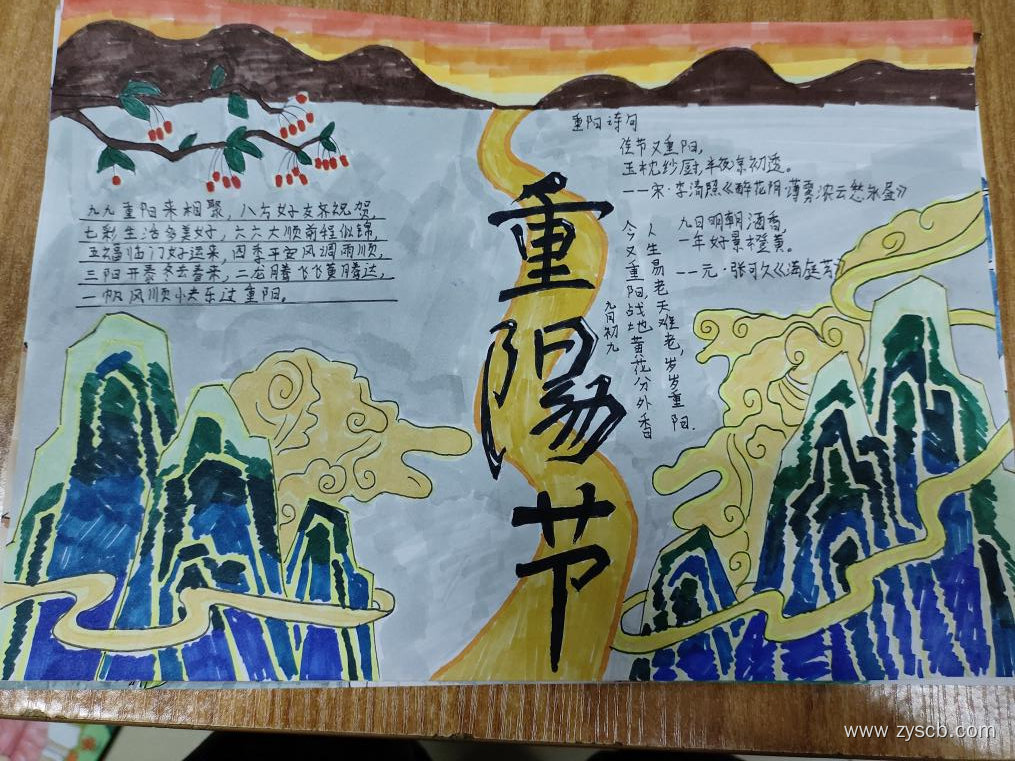 重陽节
九九重阳来相聚，八方好友齐祝贺，
七彩生活多美好，六六大顺前程似锦，
五福临门好运来，四季平安风调雨顺，
三阳开泰冬去春来，二龙腾飞飞黄腾达，
一帆风顺小老乐过重阳。
重阳诗句
佳节又重阳，
玉枕纱厨，半夜凉初透。
——宋·李清照《醉花阴·薄雾浓云愁永昼》
九日明朝酒香，
一年好景橙黄。
——元·张可久《满庭芳》
人生易老天难老，岁岁重阳.
今又重阳，战地黄花分外香
九月初九
www.zyscb.com